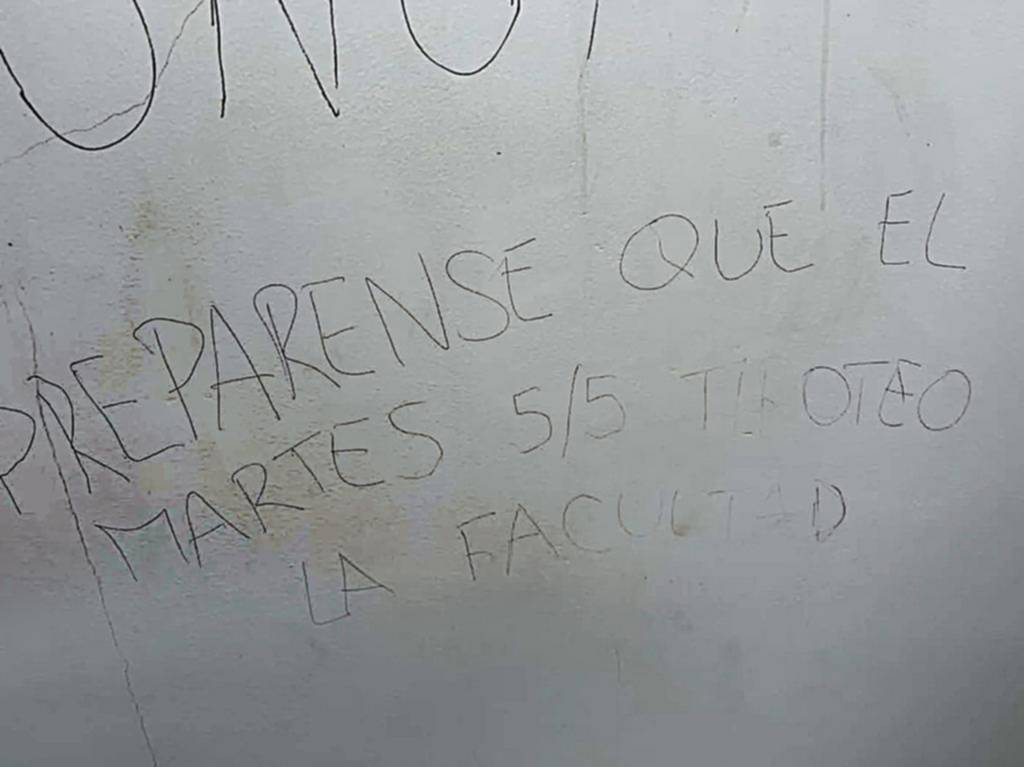 PREPARENSE QUE EL
MARTES 5/5 TIROTEO
LA FACULTAD